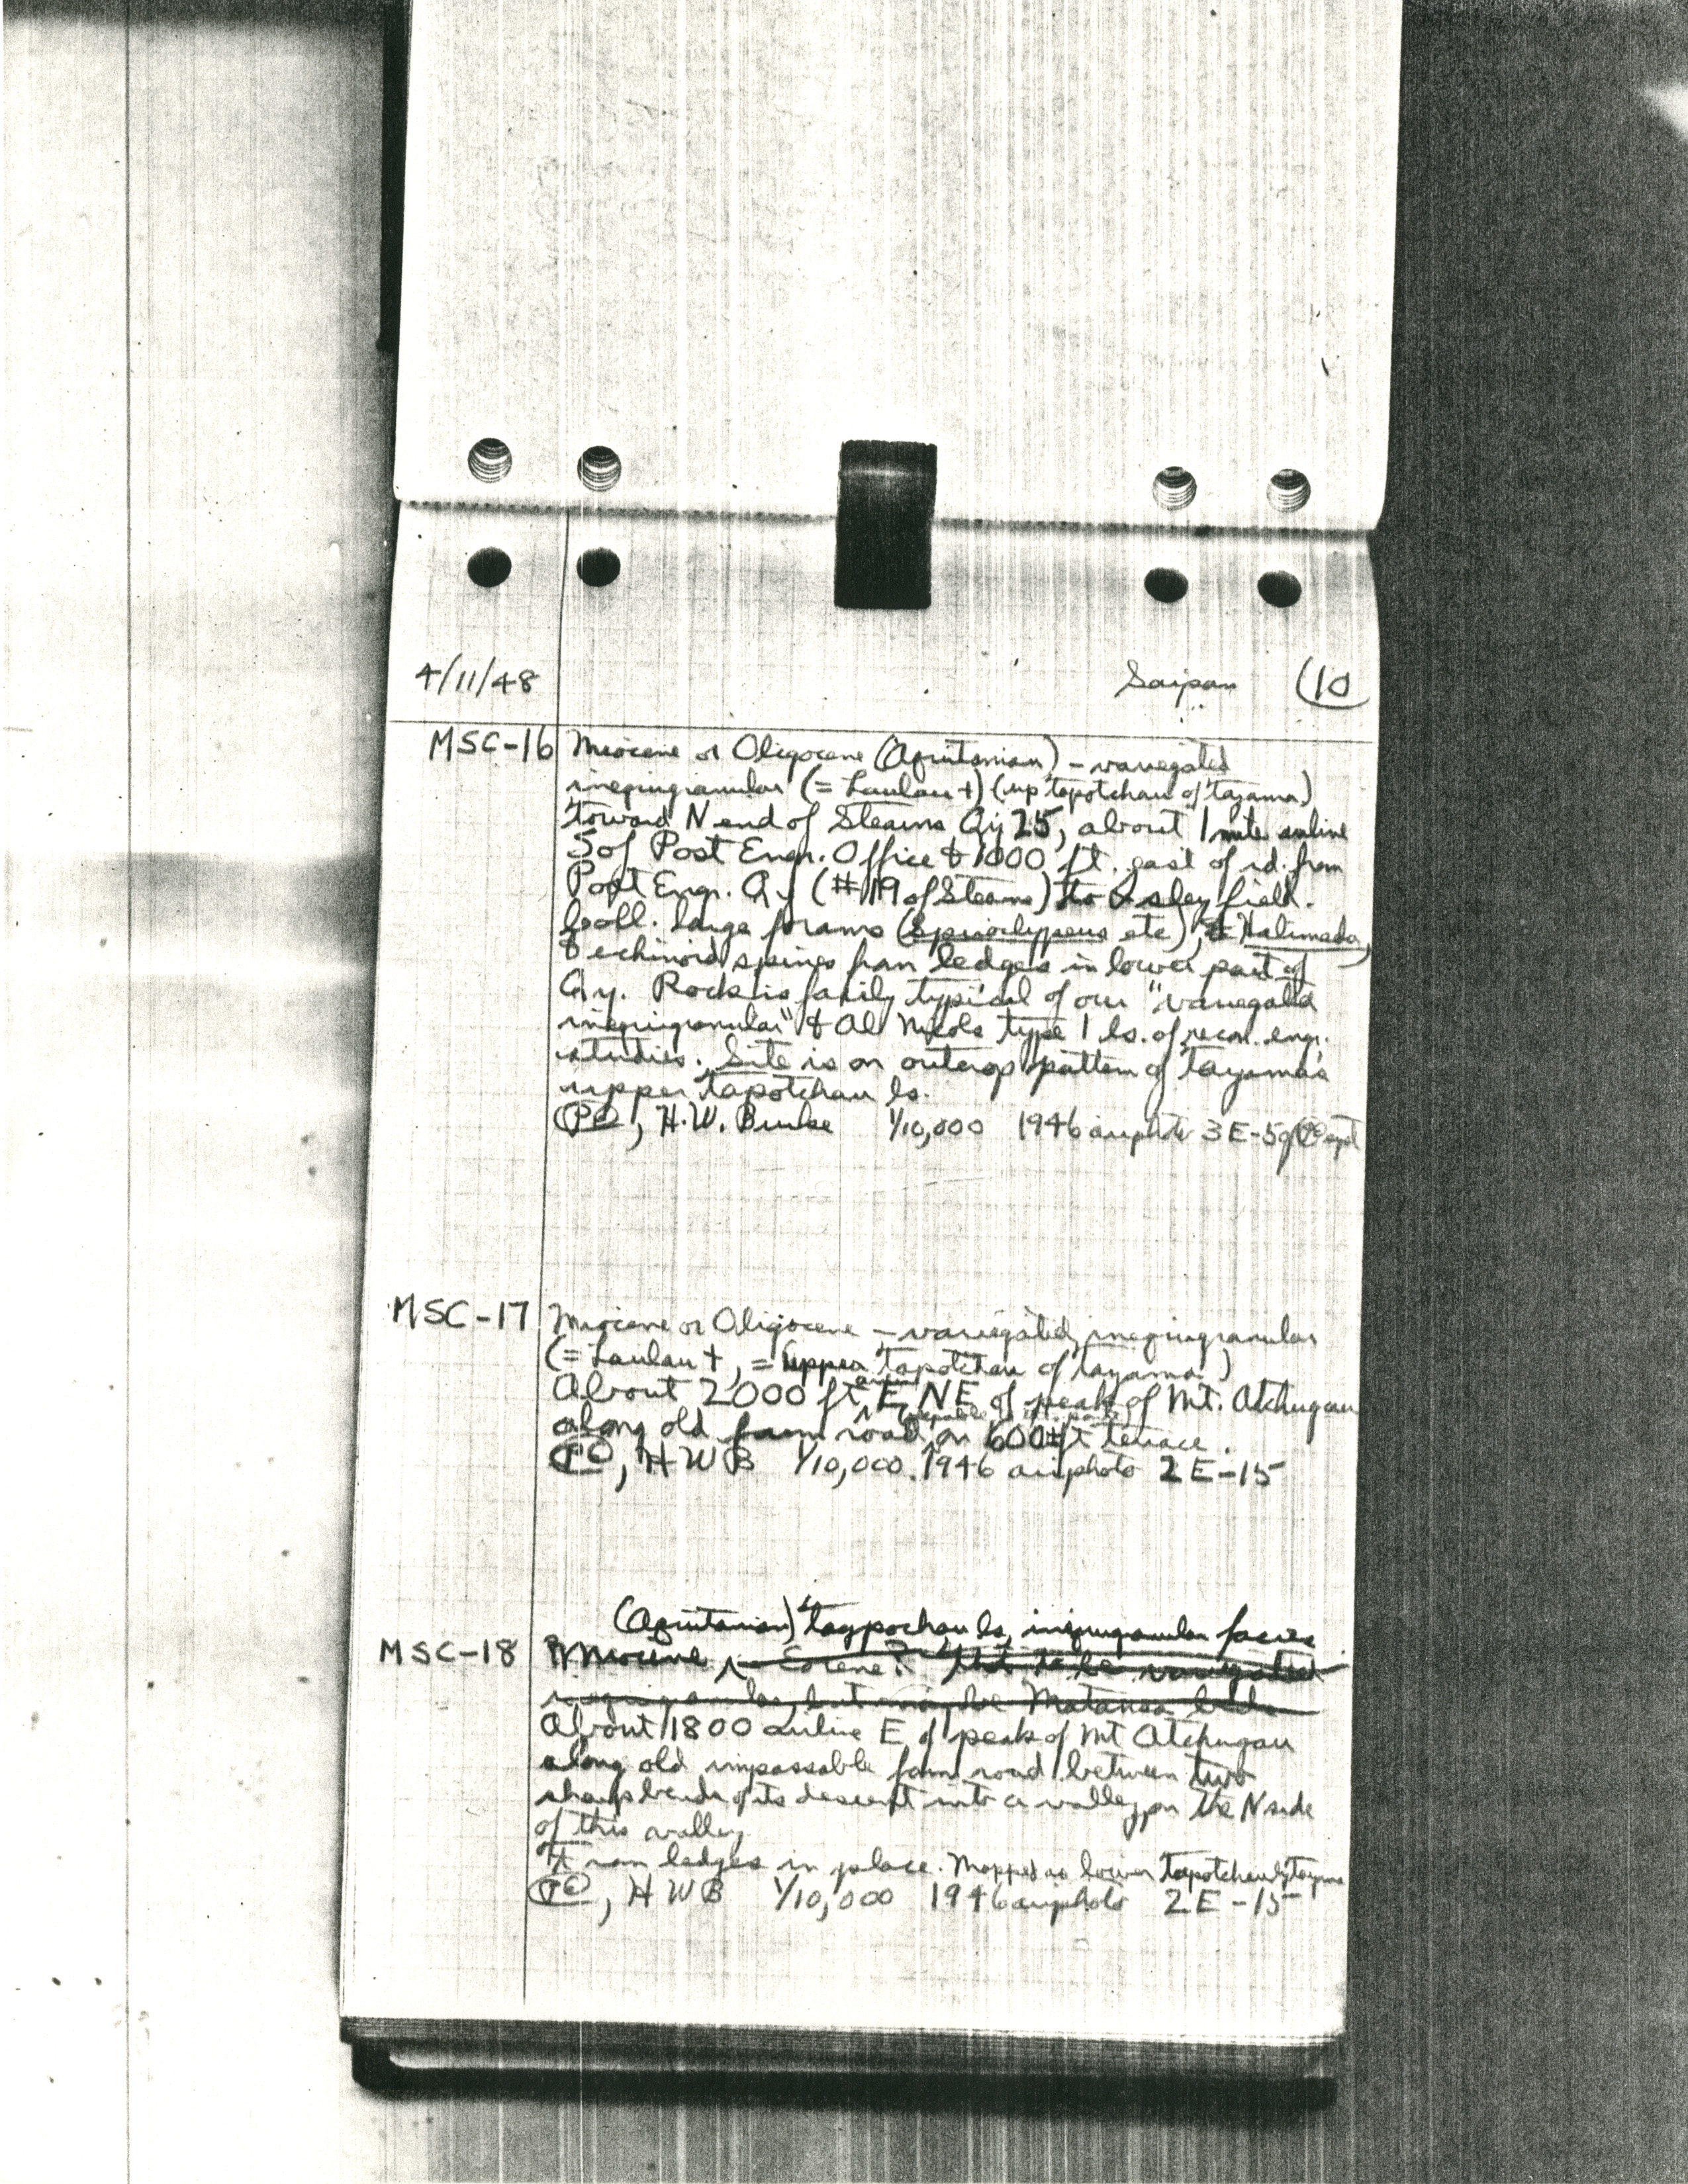 4/11/48 Saipan (10
MSC-16 Miocene or Oligocene (Aquitanian) - variegated
inequigranular (= Laulau +) (up tapotchau of tayama)
toward N end of Stearns Qy 25, about 1 mile airline
S of Post Engr. Office & 1000 ft. east of rd. from
Post Engr. Qy (#19 of Stearns) to Isley field.
Coll. large forams (Spiroclypeus etc), Halimeda,
& echinoid spines from ledges in lower part of
Qy. Rock is fairly typical of our "variegated
inequigranular" & Al Nicols type 1 ls. of recon. engr.
studies. Site is on outcrop pattern of Tayama's
upper tapotchau ls.
PEC, H.W. Burke 1/10,000 1946 airphoto 3E-5
MSC-17 Miocene or Oligocene - variegated, inequigranular
(= Laulau +, = upper tapotchau of tayama)
About 2000 ft airline E, NE of peak of Mt. Atchugau
along old farm road on 600± ft terrace.
PEC, HWB 1/10,000. 1946 airphoto 2E-15
(Aquitanian) tagpochau ls, inequigranular facies
MSC-18 Miocene or Eocene? Thot to be variegated
inequigranular, but may be Matansa beds
About 1800 airline E of peak of Mt Atchugau
along old impassable farm road between two
sharp bends of its descent into a valley, on the N side
of this valley
From ledges in place. Mapped as lower tapotchau by Tayama
PEC, HWB 1/10,000 1946 airphoto 2E-15